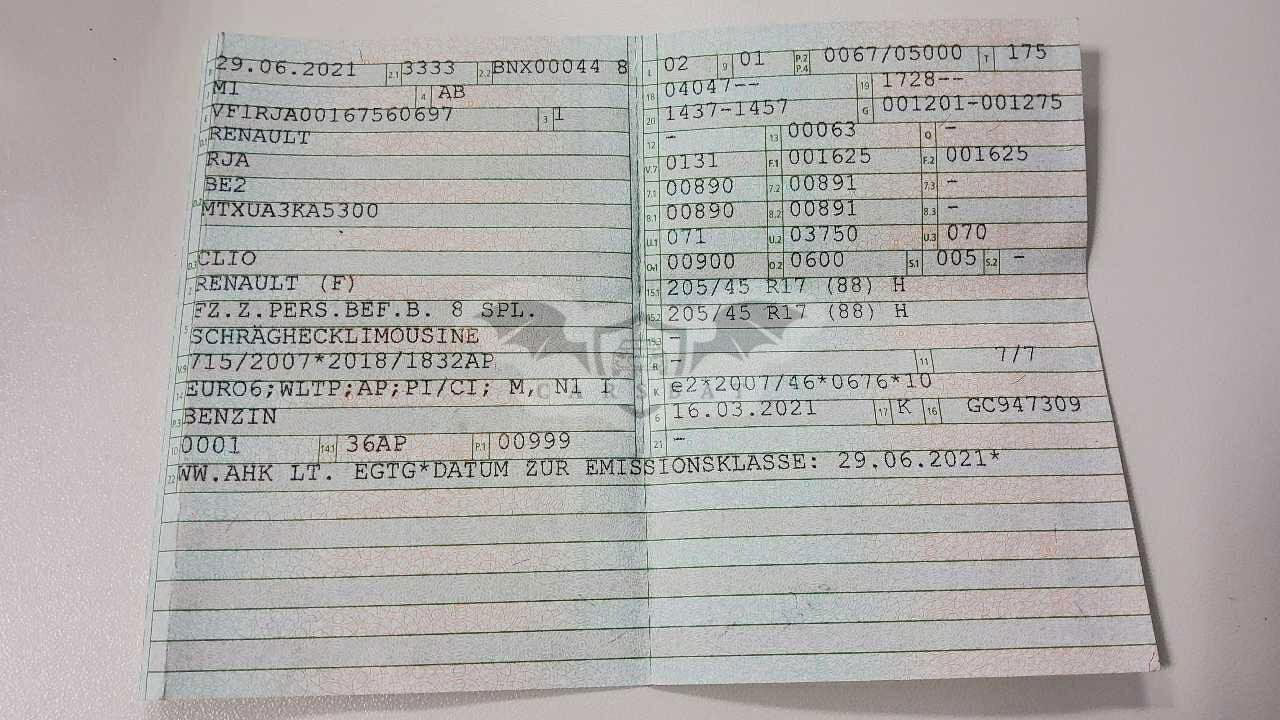 B 29.06.2021 2.1 3333 2.2 BNX00044 8
J M1 4 AB
E VF1RJA00167560697 3 1
D.1 RENAULT
RJA
D.2 BE2
MTXUA3KA5300
D.3 CLIO
2 RENAULT (F)
5 FZ.Z.PERS.BEF.B. 8 SPL.
SCHRÄGHECKLIMOUSINE
V.9 715/2007*2018/1832AP
14 EURO6;WLTP;AP;PI/CI; M, N1 I
P.3 BENZIN
10 0001 14.1 36AP P.1 00999
L 02 9 01 P.2 P.4 0067/05000 T 175
18 04047-- 19 1728--
20 1437-1457 G 001201-001275
12 - 13 00063 Q -
V.7 0131 F.1 001625 F.2 001625
7.1 00890 7.2 00891 7.3 -
8.1 00890 8.2 00891 8.3 -
U.1 071 U.2 03750 U.3 070
O.1 00900 O.2 0600 S.1 005 S.2 -
15.1 205/45 R17 (88) H
15.2 205/45 R17 (88) H
15.3 -
R - 11 7/7
K e2*2007/46*0676*10
6 16.03.2021 17 K 16 GC947309
21 -
22 WW.AHK LT. EGTG*DATUM ZUR EMISSIONSKLASSE: 29.06.2021*